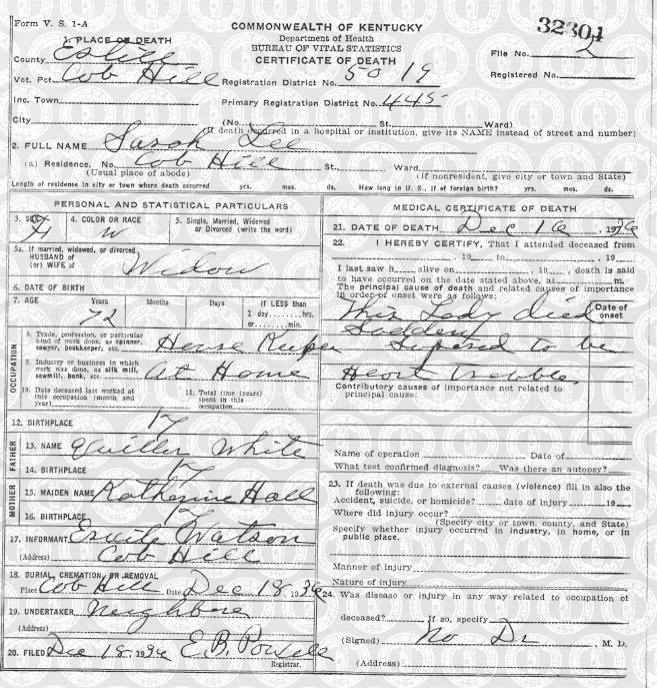 Form V. S. 1-A
COMMONWEALTH OF KENTUCKY
Department of Health
BUREAU OF VITAL STATISTICS
CERTIFICATE OF DEATH
32301
File No. 3
Registered No.
1. PLACE OF DEATH
County Estill
Vot. Pct. Cob Hill Registration District No. 5019
Inc. Town Primary Registration District No. 445
City (No. St. Ward)
(If death occurred in a hospital or institution, give its NAME instead of street and number)
2. FULL NAME Sarah Lee
(a) Residence. No. Cob Hill St., Ward
(Usual place of abode) (If nonresident, give city or town and State)
Length of residence in city or town where death occurred yrs. mos. ds. How long in U. S., if of foreign birth? yrs. mos. ds.
PERSONAL AND STATISTICAL PARTICULARS
3. SEX 4. COLOR OR RACE 5. Single, Married, Widowed
or Divorced (write the word)
W
5a. If married, widowed, or divorced
HUSBAND of
(or) WIFE of Widow
6. DATE OF BIRTH
7. AGE Years Months Days If LESS than
1 day, hrs.
or min.
72
OCCUPATION
8. Trade, profession, or particular
kind of work done, as spinner,
sawyer, bookkeeper, etc. House Keeper
9. Industry or business in which
work was done, as silk mill,
sawmill, bank, etc. at Home
10. Date deceased last worked at
this occupation (month and
year)
11. Total time (years)
spent in this
occupation
12. BIRTHPLACE Ky
FATHER
13. NAME Quiller White
14. BIRTHPLACE Ky
MOTHER
15. MAIDEN NAME Katherine Hall
16. BIRTHPLACE Ky
17. INFORMANT Watson
(Address) Cob Hill
18. BURIAL, CREMATION, OR REMOVAL
Place Cob Hill Date Dec 18, 1936
19. UNDERTAKER Neighbors
(Address)
20. FILED Dec 18, 1936 E. B. Powell
Registrar.
MEDICAL CERTIFICATE OF DEATH
21. DATE OF DEATH Dec 16, 1936
22. I HEREBY CERTIFY, That I attended deceased from
, 19 to , 19
I last saw h alive on , 19 , death is said
to have occurred on the date stated above, at m.
The principal cause of death and related causes of importance
in order of onset were as follows:
Date of
onset
This Lady died
Suddeny
Suposed to be
Heart Troubles
Contributory causes of importance not related to
principal cause:
Name of operation Date of
What test confirmed diagnosis? Was there an autopsy?
23. If death was due to external causes (violence) fill in also the
following:
Accident, suicide, or homicide? date of injury 19
Where did injury occur?
(Specify city or town, county, and State)
Specify whether injury occurred in industry, in home, or in
public place.
Manner of injury
Nature of injury
24. Was disease or injury in any way related to occupation of
deceased? If so, specify
(Signed) No Dr , M. D.
(Address)